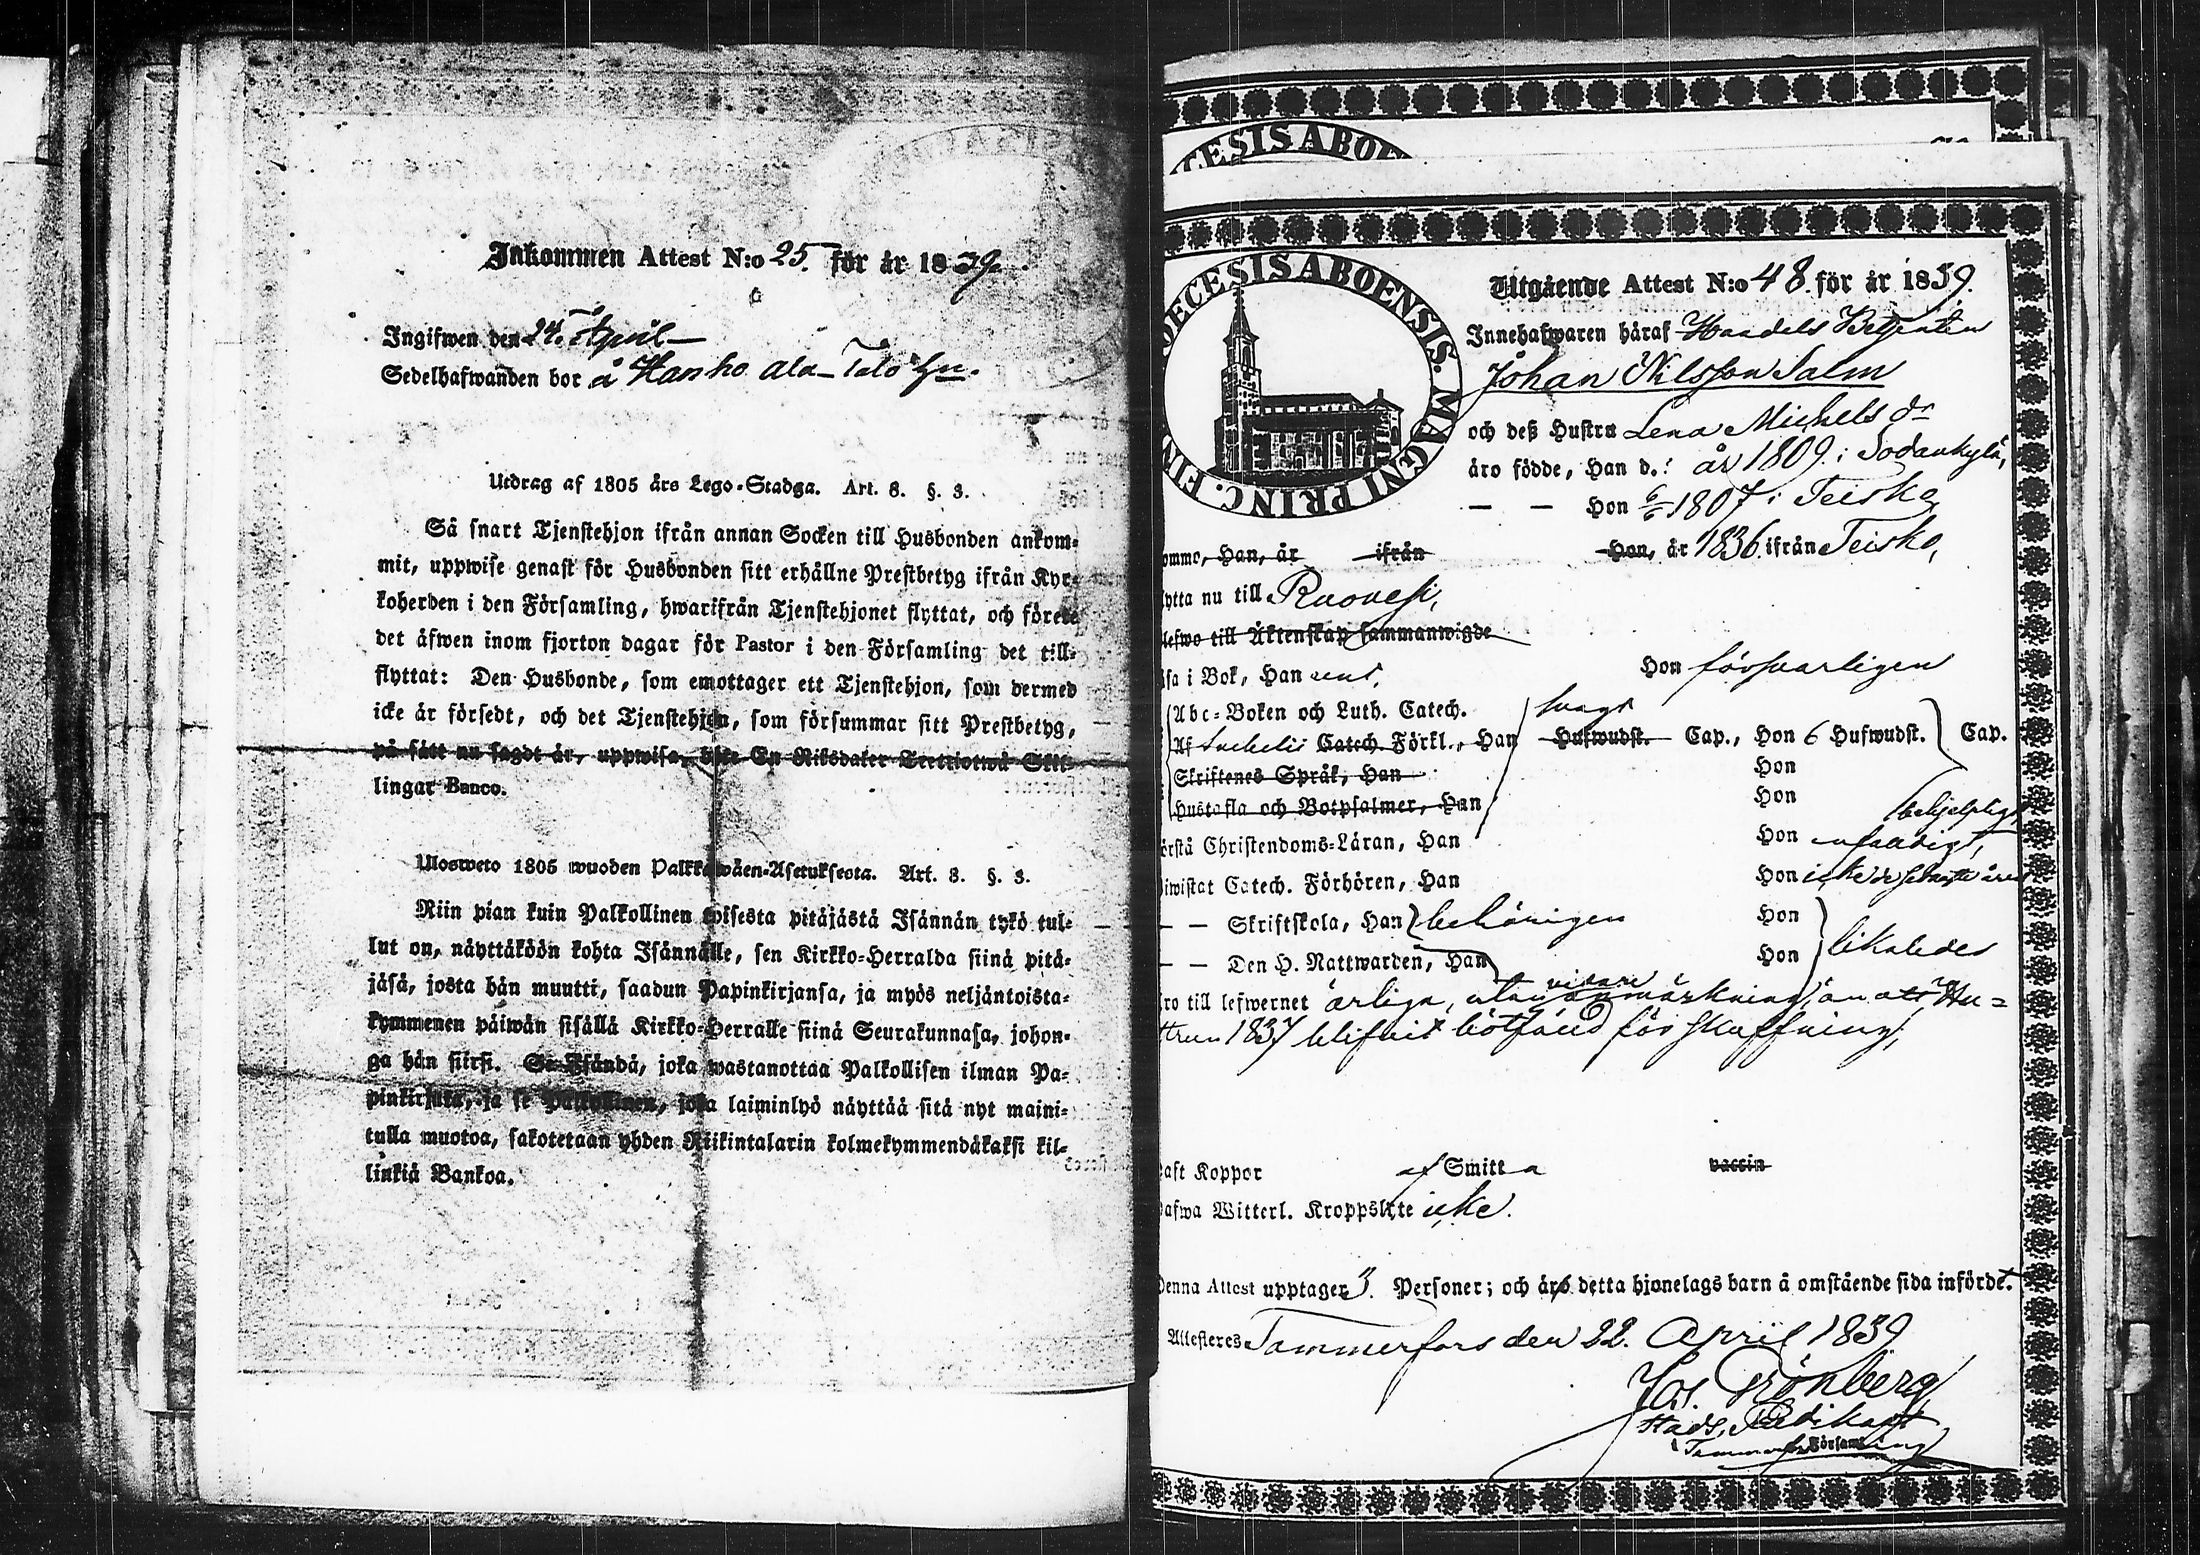 Inkommen Attest N:o 25. för år 1839.
Ingifwen den 24. April
Sedelhafwanden bor å Hanho Ala-Talo
Utdrag af 1805 års Lego-Stadga. Art. 8. §. 3.
Så snart Tjenstehjon ifrån annan Socken till Husbonden ankom-
mit, uppwise genast för Husbonden sitt erhållne Prestbetyg ifrån Kyr-
koherden i den Församling, hwarifrån Tjenstehjonet flyttat, och förete
det äfwen inom fjorton dagar för Pastor i den Församling det till-
flyttat: Den Husbonde, som emottager ett Tjenstehjon, som dermed
icke är försedt, och det Tjenstehjon, som försummar sitt Prestbetyg,
på sätt nu sagdt är, uppwisa, böte En Riksdaler Trettiotwå Skil-
lingar Banco.
Ulosweto 1805 wuoden Palkkawäen-Asetuksesta. Art. 8. §. 3.
Niin pian kuin Palkollinen toisesta pitäjästä Isännän tykö tul-
lut on, näyttäköön kohta Isännälle, sen Kirkko-Herralda siinä pitä-
jäsä, josta hän muutti, saadun Papinkirjansa, ja myös neljäntoista-
kymmenen päiwän sisällä Kirkko-Herralle siinä Seurakunnasa, johon-
ga hän siirsi. Se Isändä, joka wastanottaa Palkollisen ilman Pa-
pinkirjata, ja se Palkollinen, joka laiminlyö näyttää sitä nyt maini-
tulla muotoa, sakotetaan yhden Riikintalarin kolmekymmendäkaksi kil-
linkiä Bankoa.
ECESIS ABOE
DECESIS ABOENSIS. MAGNI PRINC. FIN
Utgående Attest N:o 48. för år 1839.
Innehafwaren häraf Handels Betjenten
Johan Nilsson Salm
och deß Hustru Lena Michelsdr
äro födde, Han d. år 1809. i Sodankylä,
— — Hon 6/6 1807 i Teisko
ommo, Han, år ifrån Hon, år 1836. ifrån Teisko,
lytta nu till Ruovesi,
lefwo till Äktenskap sammanwigde
äsa i Bok, Han rent, Hon försvarligen
Abc-Boken och Luth. Catech. svagt
Af Svebelii Catech. Förkl., Han Hufwudst. Cap., Hon 6 Hufwudst. Cap.
Skriftenes Språk, Han Hon
Hustafla och Botpsalmer, Han Hon
behjelpligt
örstå Christendoms-Läran, Han Hon
iwistat Catech. Förhören, Han Hon icke de senaste åren
— — Skriftskola, Han behörigen Hon
— — Den H. Nattwarden, Han Hon likaledes
ro till lefwernet ärliga, utan vidare anmärkning, än att Hu=
strun 1837 blifvit bötfäld för skaffning,
aft Koppor af Smitta vaccin
afwa Witterl. Kroppslyte icke.
Denna Attest upptager 3. Personer; och äro detta hjonelags barn å omstående sida införde.
Attesteres Tammerfors den 22. April 1839
Jos. Grönberg
Stads Predikant
i Tammerfors Församling